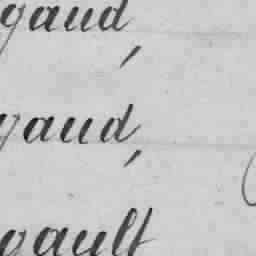 gaud,
gaud,
gault